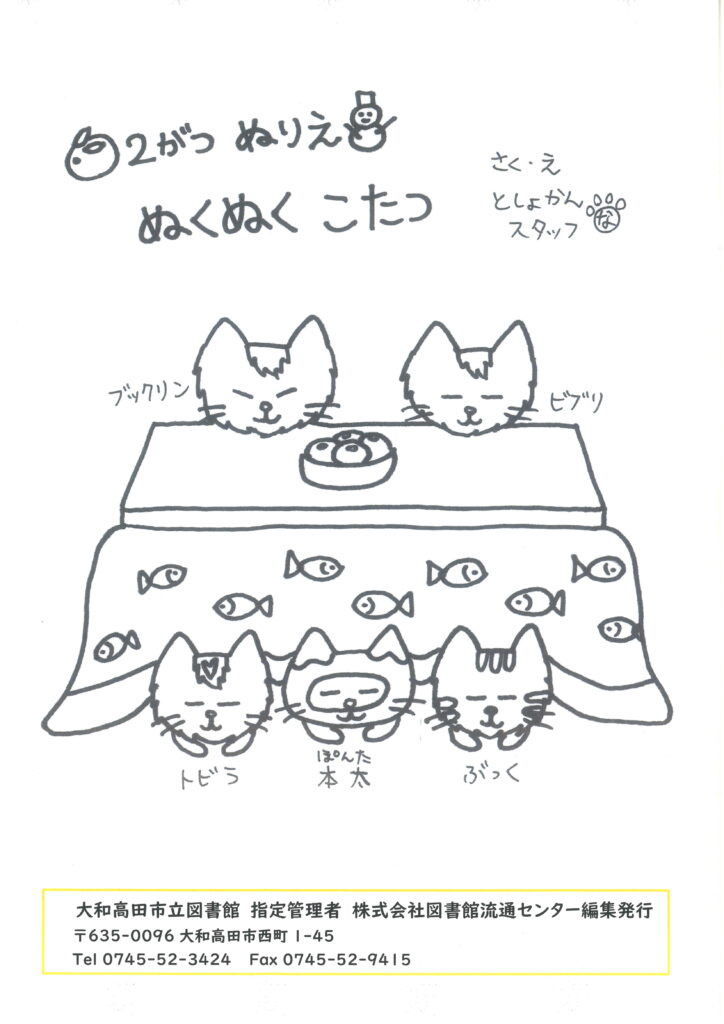 2がつ ぬりえ
ぬくぬく こたつ
さく・え
としょかん
スタッフ
な
ブックリン
ビブリ
トビラ
ぽんた
本太
ぶっく
大和高田市立図書館 指定管理者 株式会社図書館流通センター編集発行
〒635-0096 大和高田市西町 1-45
Tel 0745-52-3424 Fax 0745-52-9415